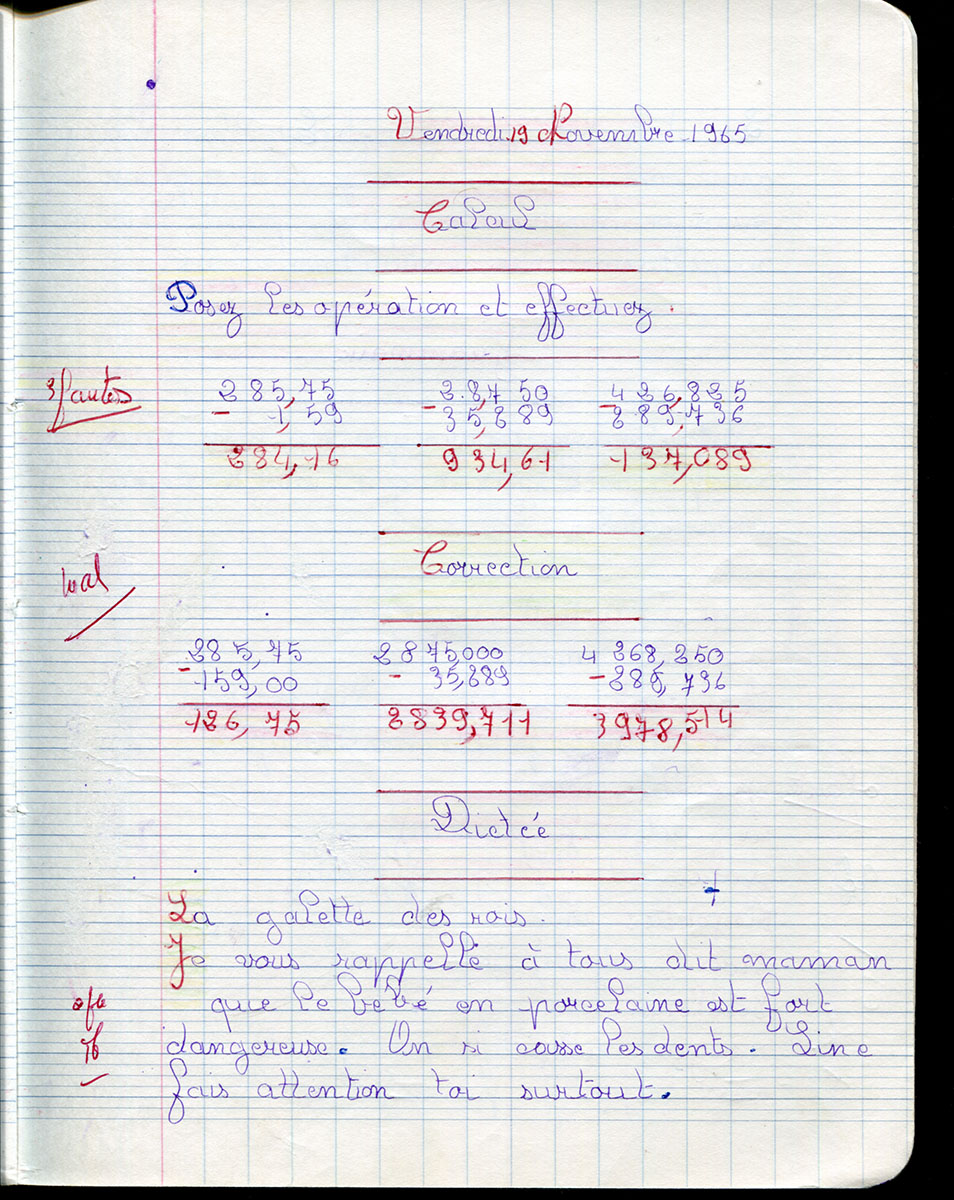 Vendredi 19 Novembre 1965
Calcul
Posez les opération et effectuez.
3 fautes
285,75 2.8,750 426,825
- 1,59 - 35,289 - 289,736
284,16 934,61 137,089
Correction
mal
285,75 2875,000 4268,250
- 159,00 - 35,289 - 289,736
126,75 2839,711 3978,514
Dictée
La galette des rois.
Je vous rappelle à tous dit maman
que le bébé en porcelaine est fort
dangereuse. On si casse les dents. Line
fais attention toi surtout.